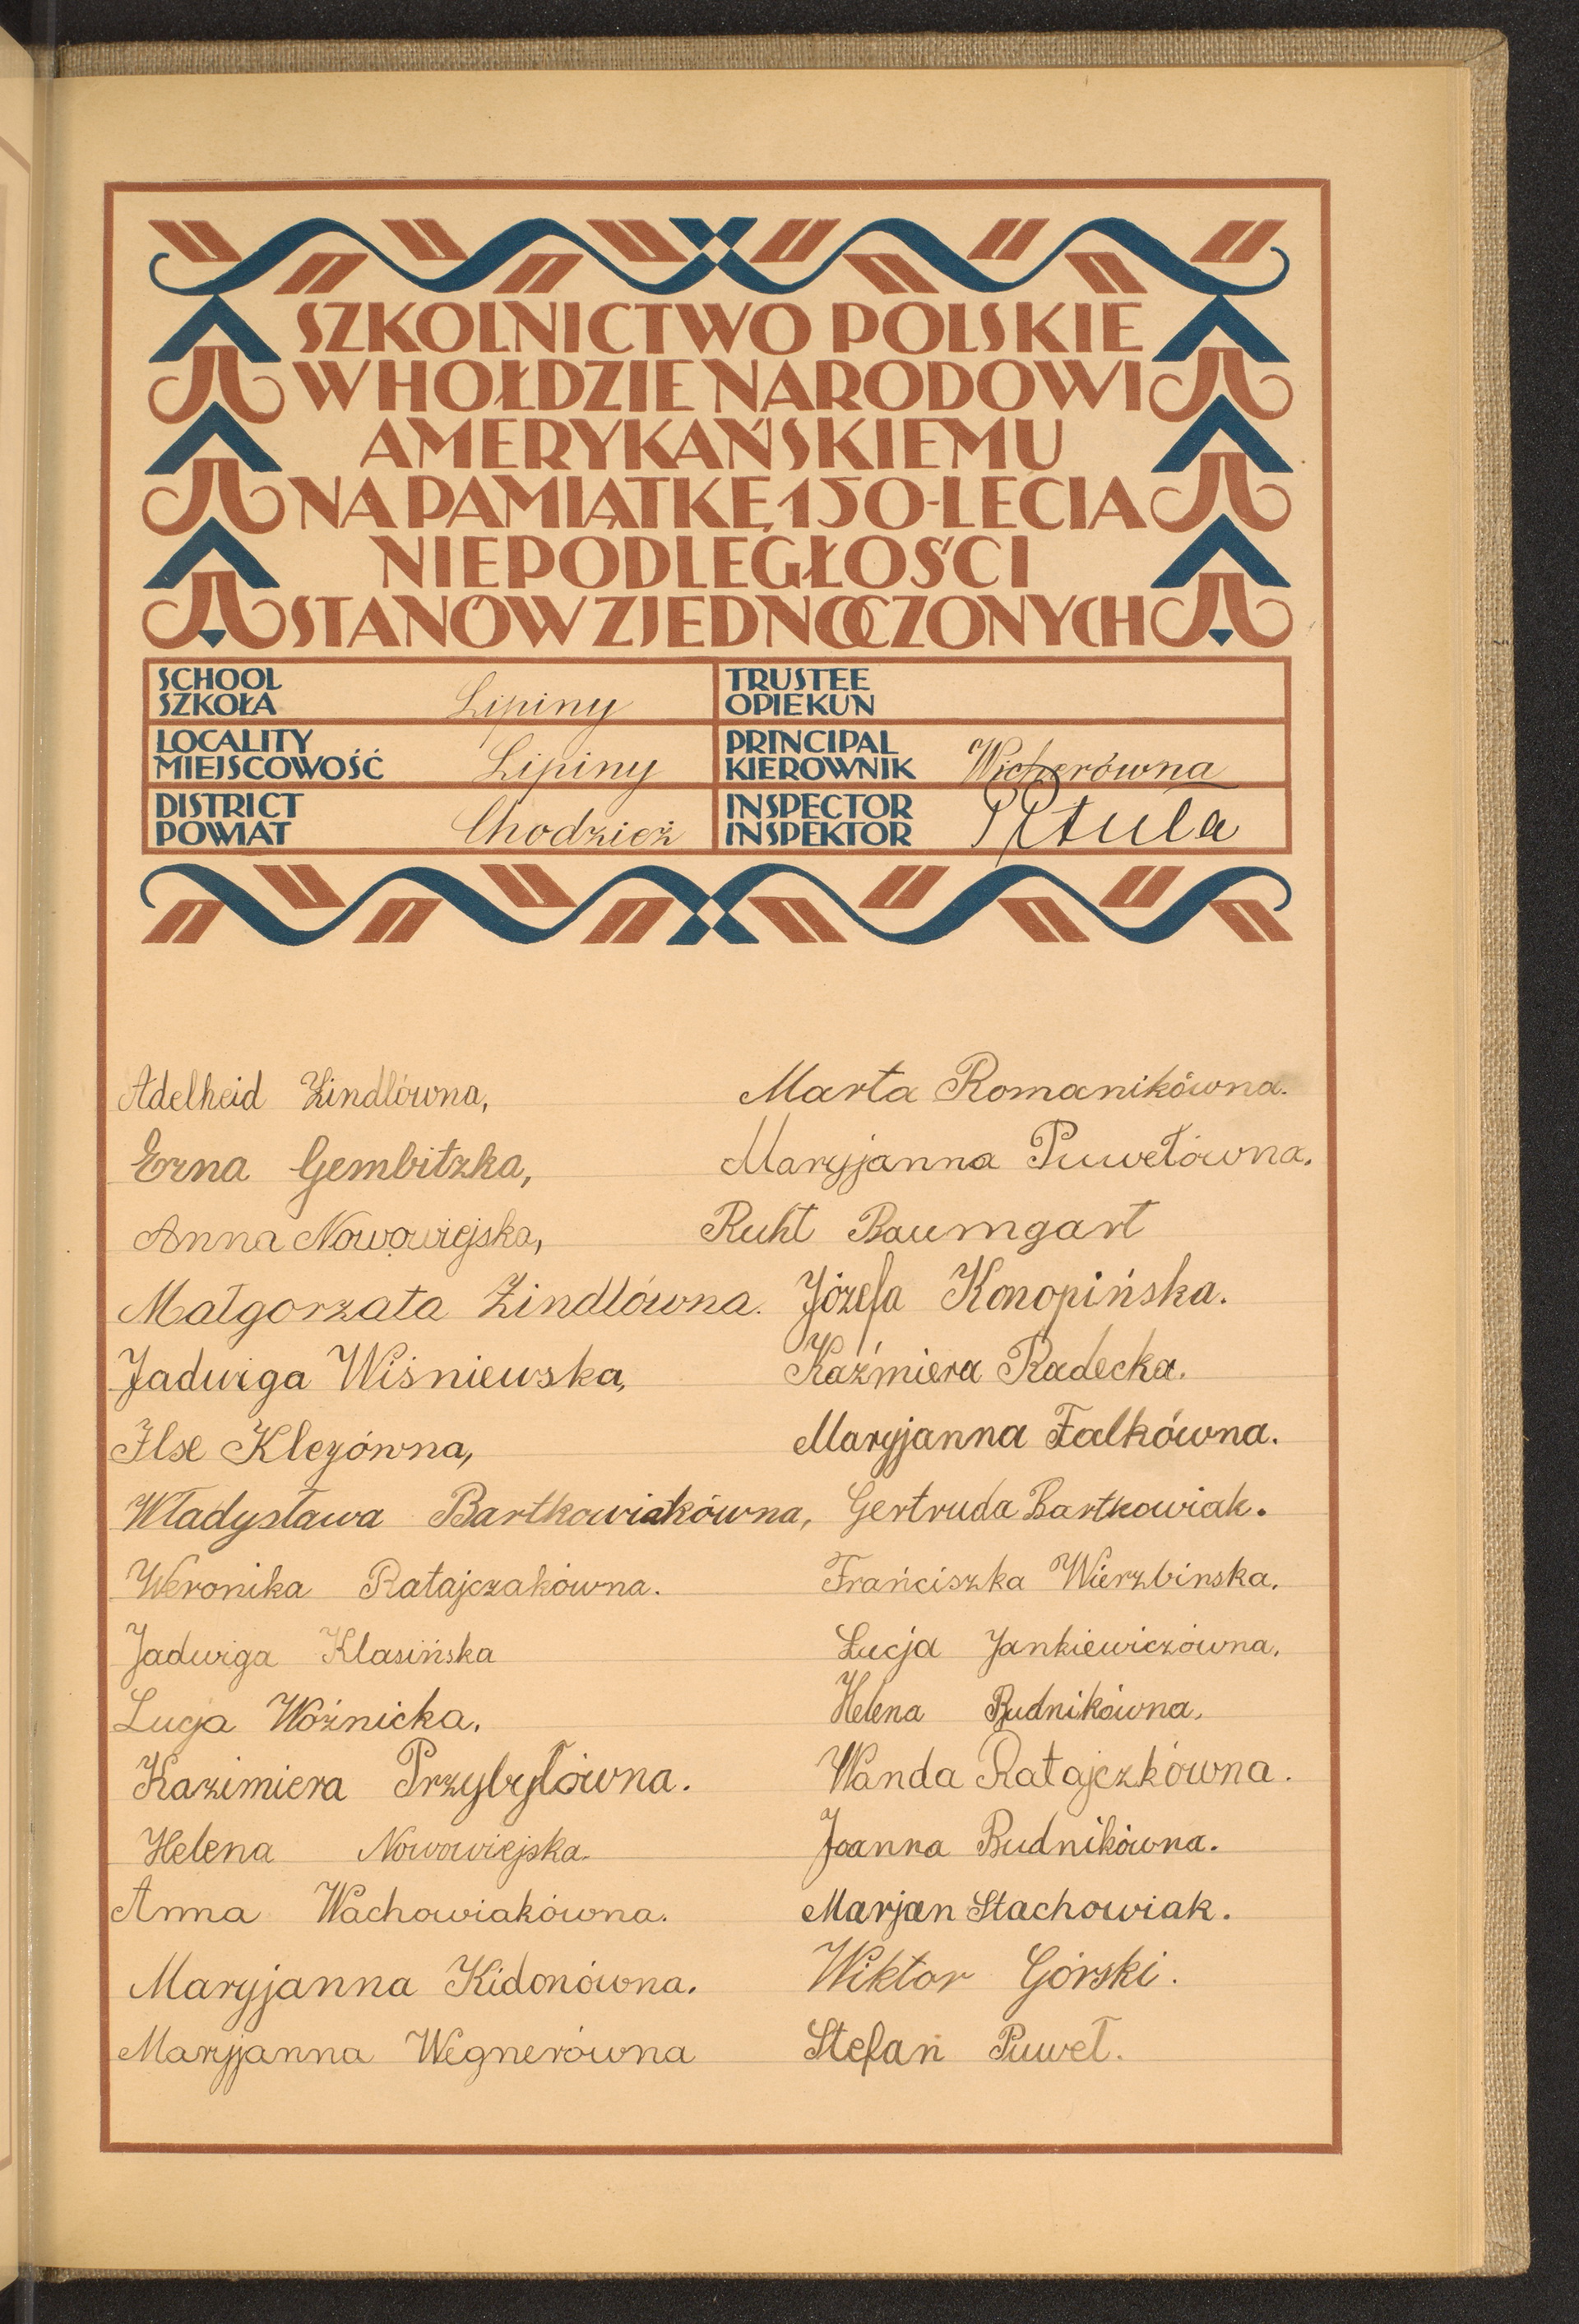 SZKOLNICTWO POLSKIE
W HOŁDZIE NARODOWI
AMERYKAŃSKIEMU
NA PAMIĄTKĘ 150-LECIA
NIEPODLEGŁOŚCI
STANÓW ZJEDNOCZONYCH
SCHOOL
SZKOŁA Lipiny
TRUSTEE
OPIEKUN
LOCALITY
MIEJSCOWOŚĆ Lipiny
PRINCIPAL
KIEROWNIK Wicherówna
DISTRICT
POWIAT Chodzież
INSPECTOR
INSPEKTOR
Adelheid Zindlówna,
Erna Gembitzka,
Anna Nowowiejska,
Małgorzata Zindlówna.
Jadwiga Wiśniewska,
Ilse Klezówna,
Władysława Bartkowiakówna,
Weronika Ratajczakówna.
Jadwiga Klasińska
Lucja Woźnicka.
Kazimiera Przybyłówna.
Helena Nowowiejska.
Anna Wachowiakówna.
Maryjanna Kidonówna.
Maryjanna Wegnerówna
Marta Romanikówna.
Maryjanna Puwełówna.
Ruht Baumgart
Józefa Konopińska.
Kaźmiera Radecka.
Maryjanna Falkówna.
Gertruda Bartkowiak.
Frańciszka Wierzbinska.
Łucja Jankiewiczówna.
Helena Budnikówna.
Wanda Ratajczkówna.
Joanna Budnikówna.
Marjan Stachowiak.
Wiktor Górski.
Stefan Puweł.